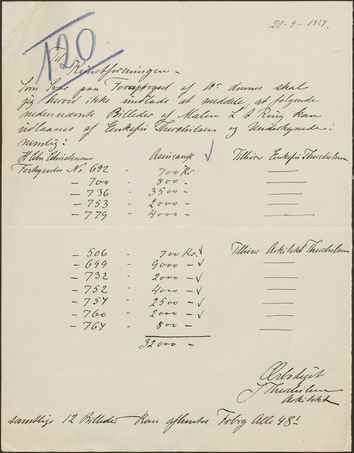 21-9-1929.
120
Til Kunstforeningen.
Som Svar paa Forespørgsel af 18' dennes skal
jeg herved ikke undlade at meddele, at følgende
nedennævnte Billeder af Maler L A Ring kan
udlaanes af Enkefru Thuchelsen og Undertegnede:
nemlig:
H. Chr. Christensen Assurance Tilhører Enkefru
Fortegnelse No 692 - 700 Kr.
- 700 - 800 -
- 736 - 3500 -
- 753 - 2000 -
- 779 - 4000 -
- 506 - 700 Kr. Tilhører Arkitekt
- 699 - 9000 -
- 732 - 2000 -
- 752 - 4000 -
- 757 - 2500 -
- 760 - 2000 -
- 764 - 800 -
32000 -
Ærbødigst
Arkitekt
samtlige 12 Billeder kan afhentes Alle 48